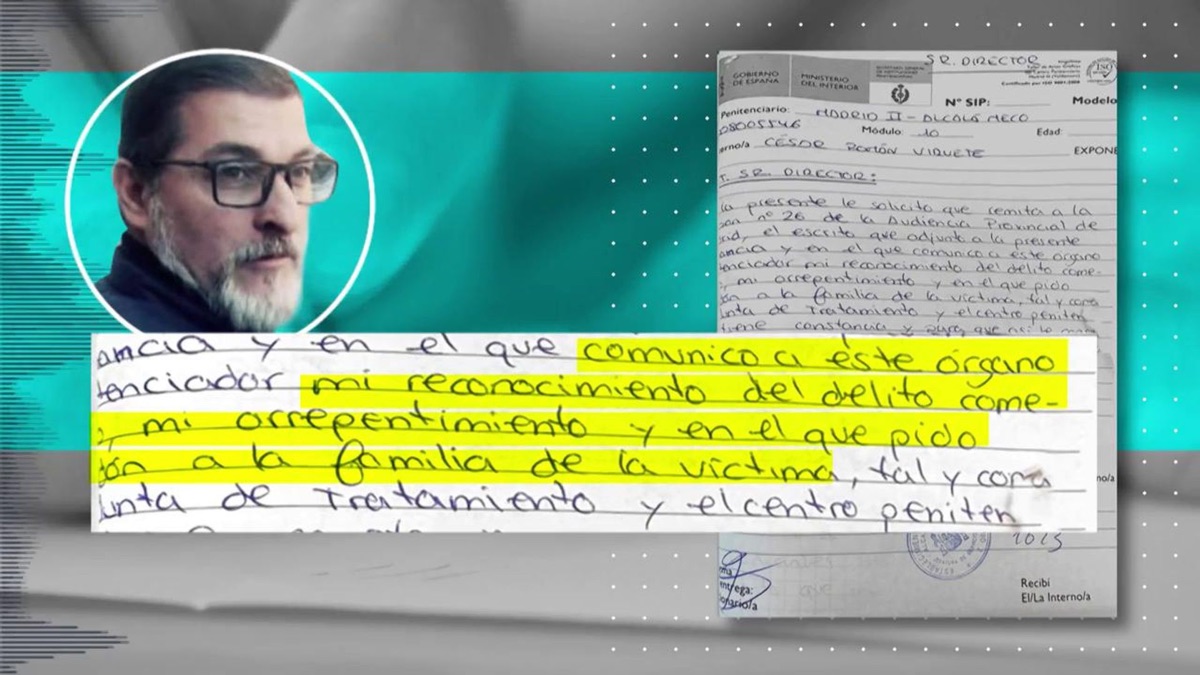 SR. DIRECTOR
GOBIERNO DE ESPAÑA
MINISTERIO DEL INTERIOR
Nº SIP:
Modelo
Penitenciario: MADRID II - ALCALÁ MECO
Módulo: 10 Edad:
erno/a CÉSAR ROMÁN VIRUETE EXPONE
T. SR. DIRECTOR:
la presente le solicito que remita a la
nº 26 de la Audiencia Provincial de
rid, el escrito que adjunto a la presente
ancia y en el que comunico a éste órgano
tenciador mi reconocimiento del delito come-
, mi arrepentimiento y en el que pido
dón a la familia de la víctima, tal y como
unta de Tratamiento y el centro peniten
tiene constancia y
ancia y en el que comunico a éste órgano
tenciador mi reconocimiento del delito come-
, mi arrepentimiento y en el que pido
dón a la familia de la víctima, tal y como
unta de Tratamiento y el centro peniten
no/a
Recibí
El/La Interno/a